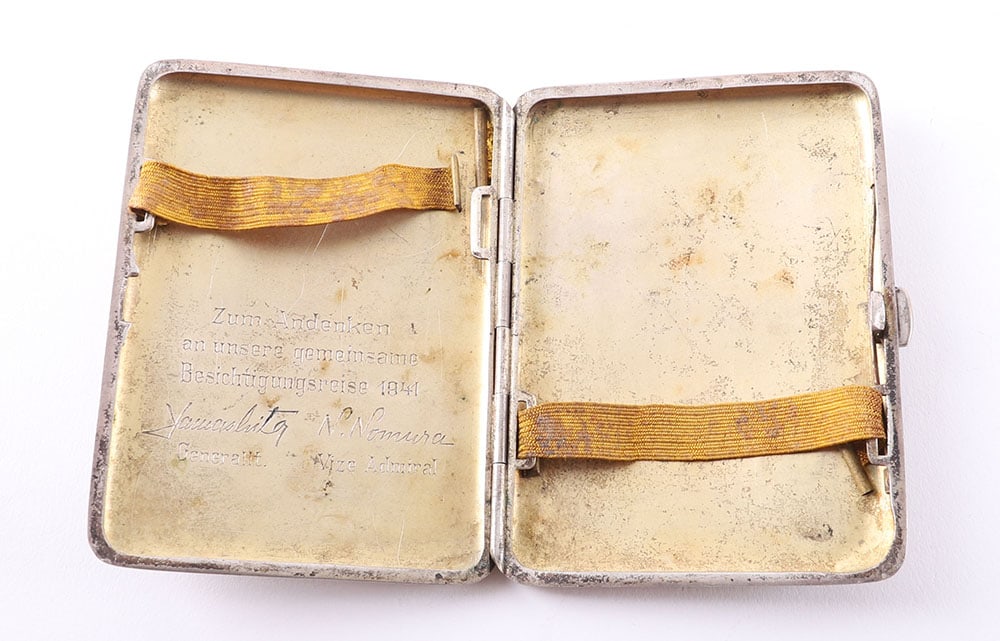 Zum Andenken
an unsere gemeinsame
Besichtigungsreise 1941
Yamashita N. Nomura
Generallt. Vize Admiral